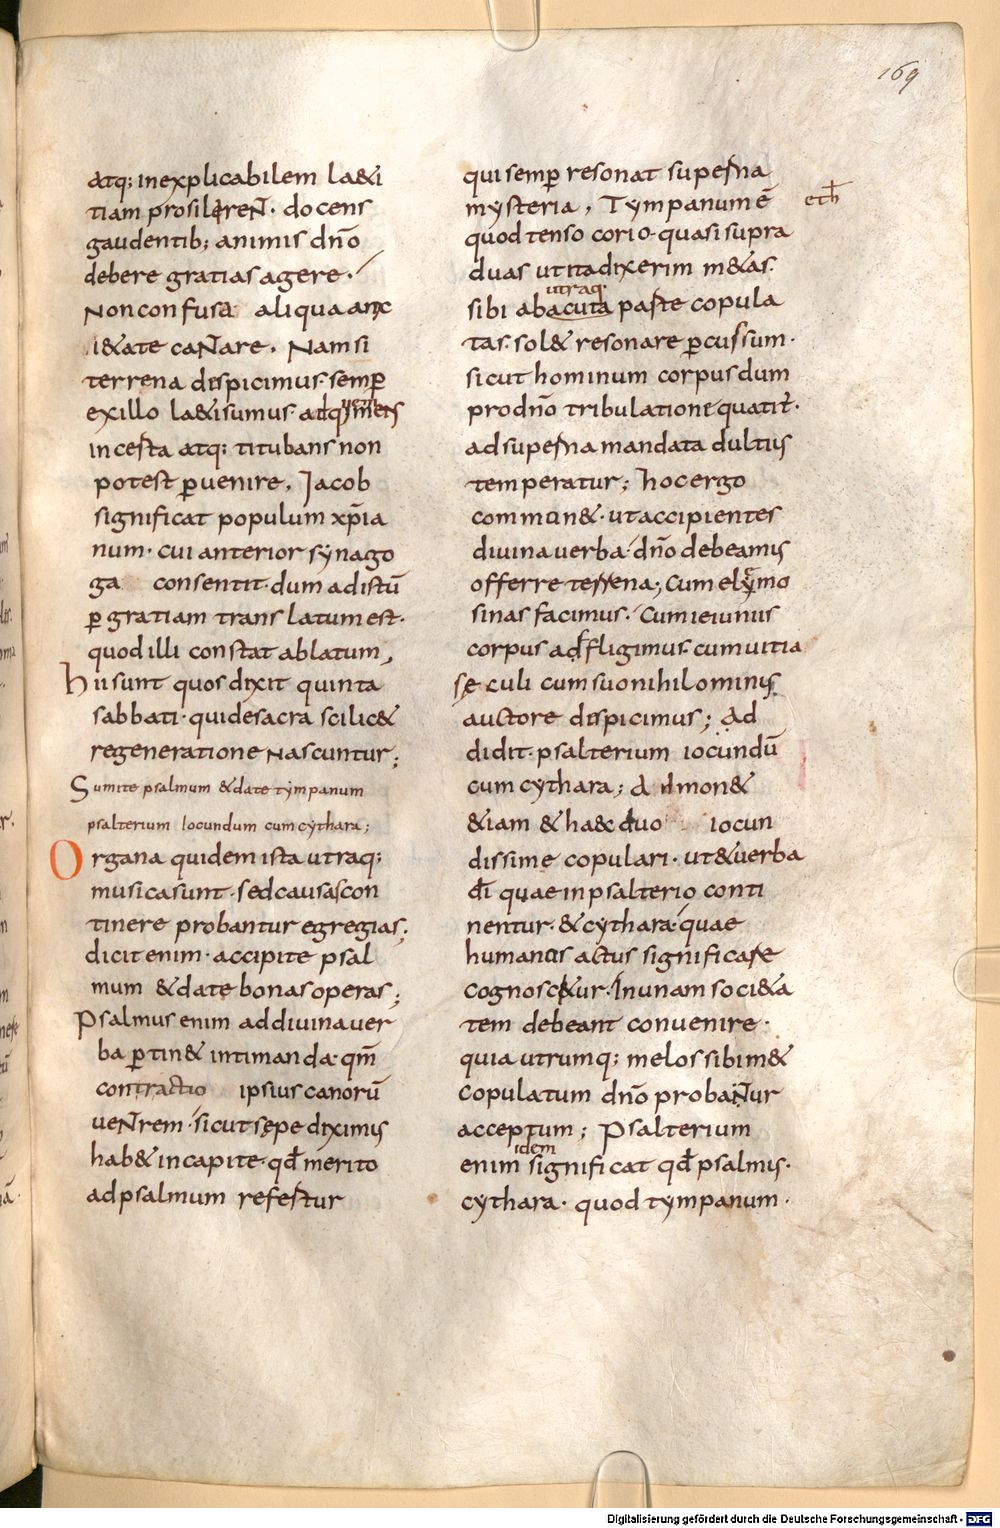 169
atq; inexplicabilem la&i
tiam prosilireNt. docens
gaudentib; animis dn̄o
debere gratias agere.
Non confusa aliqua anx
i&ate caNtare. Nam si
terrena dispicimus. semp̄
ex illo la&i sumus. atq; mens
incesta atq; titubans non
potest ꝑuenire. Jacob
significat populum xp̄ia
num. cui anterior synago
ga consentit. dum ad istū
ꝑ gratiam translatum est.
quod illi constat ablatum,
hii sunt quos dixit quinta
sabbati. qui de sacra scilic&
regeneratione Nascuntur;
Sumite psalmum & date tympanum
psalterium Iocundum cum cythara;
Organa quidem ista utraq;
musica sunt. sed causas con
tinere probantur egregias;
dicit enim. accipite psal
mum & date bonas operas;
Psalmus enim ad diuina uer
ba ꝑtin& intimanda. qm̄
contractio ipsius canorū
ueNtrem. sicut sępe diximus
hab& in capite. qđ merito
ad psalmum refertur
qui semꝑ resonat superna
mysteria. Tympanum ē
eth
quod tenso corio. quasi supra
duas ut ita dixerim m&as.
utraq.
sibi ab acuta parte copula
tas. sol& resonare ꝑcussum.
sicut hominum corpus dum
pro dn̄o tribulatione quatit̄.
ad superna mandata dultius
temperatur; hoc ergo
common&. ut accipientes
diuina uerba. dn̄o debeamus
offerre terrena; Cum elymo
sinas facimus. Cum ieiuniis
corpus adfligimus. cum uitia
sęculi cum suo nihilominus
auctore dispicimus; Ad
didit. psalterium iocundū
cum cythara; Admon&
&iam & haec duo iocun
dissime copulari. ut & uerba
dī quae in psalterio conti
nentur. & cythara quae
humanos actus significare
cognosc&ur. In unam soci&a
tem debeant conuenire.
quia utrumq; melos sibim&
copulatum dn̄o probaNtur
acceptum; Psalterium
idem
enim significat qđ psalmus.
cythara. quod tympanum.
Digitalisierung gefördert durch die Deutsche Forschungsgemeinschaft - DFG